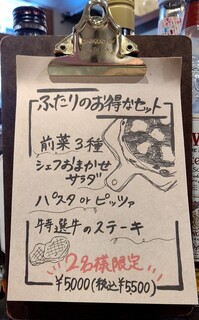 ふたりのお得なセット
前菜3種
シェフおまかせ
サラダ
パスタorピッツァ
特選牛のステーキ
2名様限定
¥5000(税込¥5500)